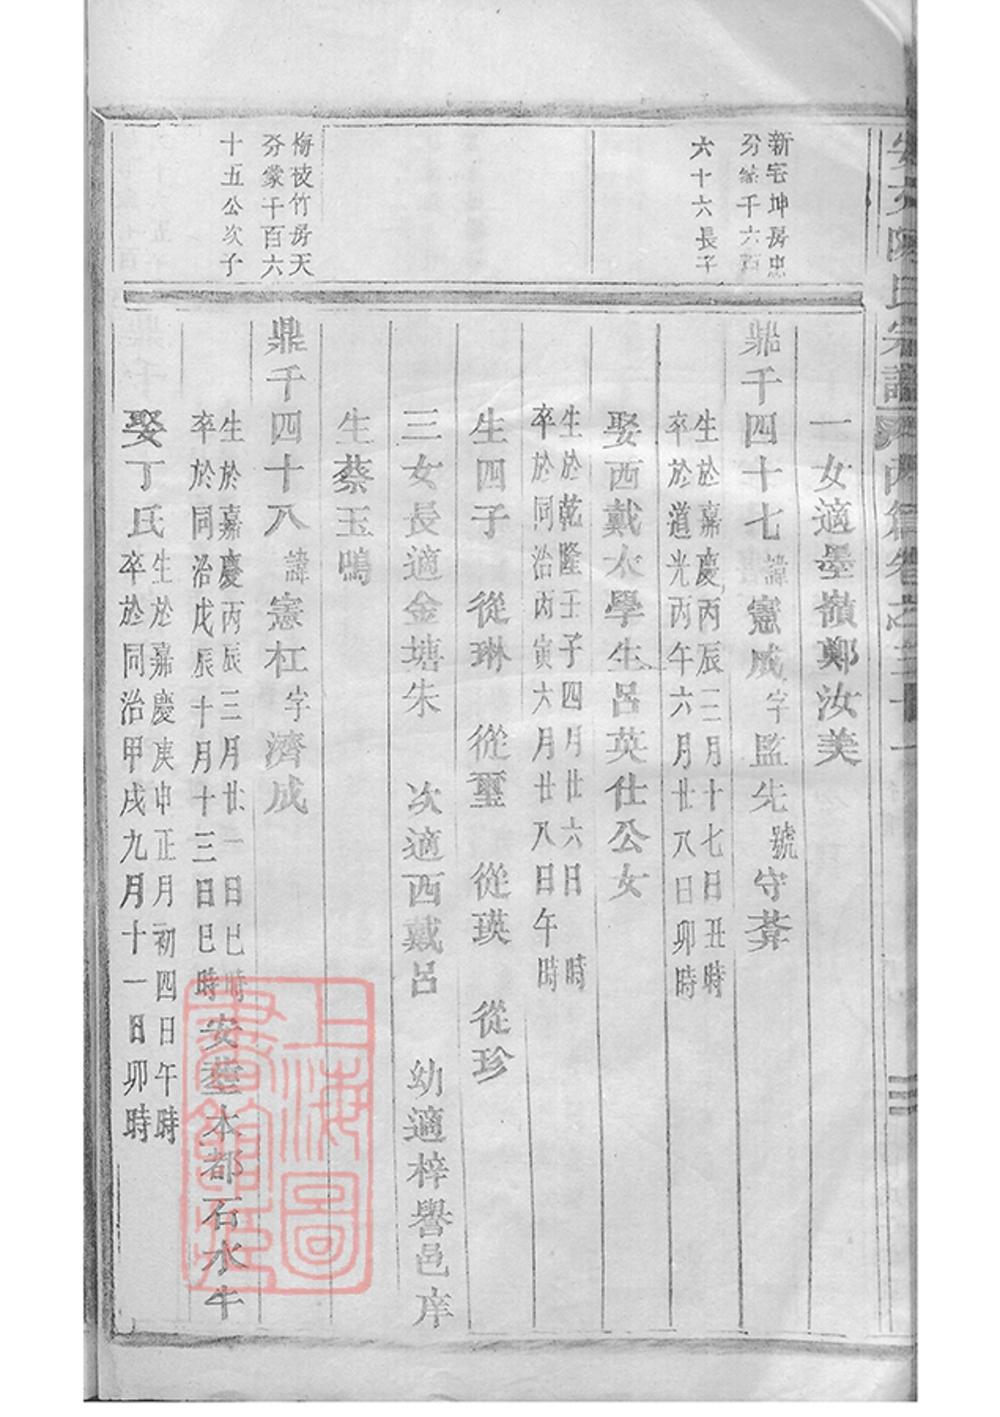 安文陳氏宗譜 丙集卷之三十一
新宅坤房忠
分 千六百
六十六長子
一女適墨嶺鄭汝美
鼎千四十七諱憲成字監先號守莾
生於嘉慶丙辰二月十七日丑時
卒於道光丙午六月廿八日卯時
娶西戴太學生呂英仕公女
生於乾隆壬子四月廿六日 時
卒於同治丙寅六月廿八日午時
生四子 從琳 從璽 從瑛 從珍
三女長適金塘朱 次適西戴呂 幼適梓譽邑庠
生蔡玉鳴
梅枝竹房天
分蒙千百六
十五公次子
鼎千四十八諱憲杠字濟成
生於嘉慶丙辰三月廿一日巳時
卒於同治戊辰十月十三日巳時
安塟本都石水牛
娶丁氏
生於嘉慶庚申正月初四日午時
卒於同治甲戌九月十一日卯時
上海圖
書館藏